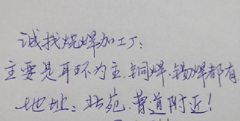 诚找烧焊加工厂:
主要是耳环为主.铜焊.锡焊都有
地址: 北苑.普道附近!